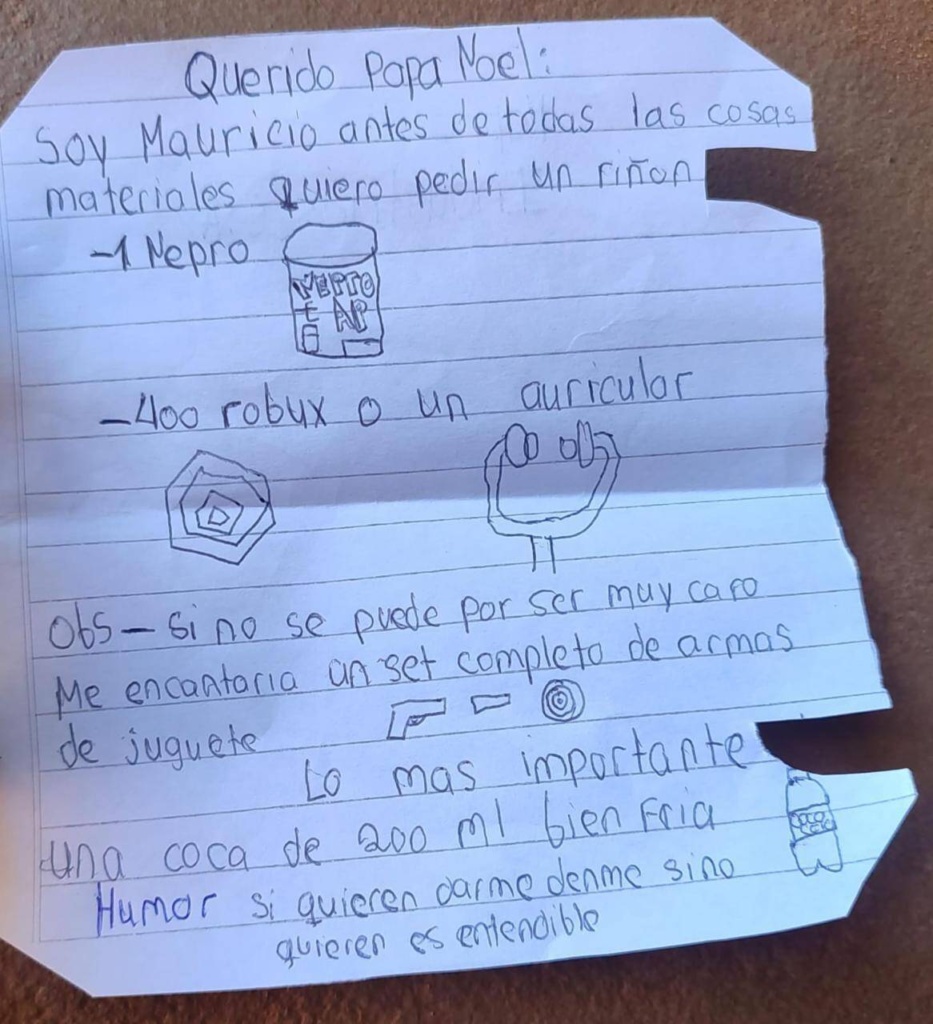 Querido Papa Noel:
Soy Mauricio antes de todas las cosas
materiales quiero pedir un riñon
-1 Nepro
NEPRO
AP
-400 robux o un auricular
Obs- si no se puede por ser muy caro
Me encantaria un set completo de armas
de juguete
Lo mas importante
una coca de 200 ml bien Fria
Humor si quieren darme denme sino
quieren es entendible